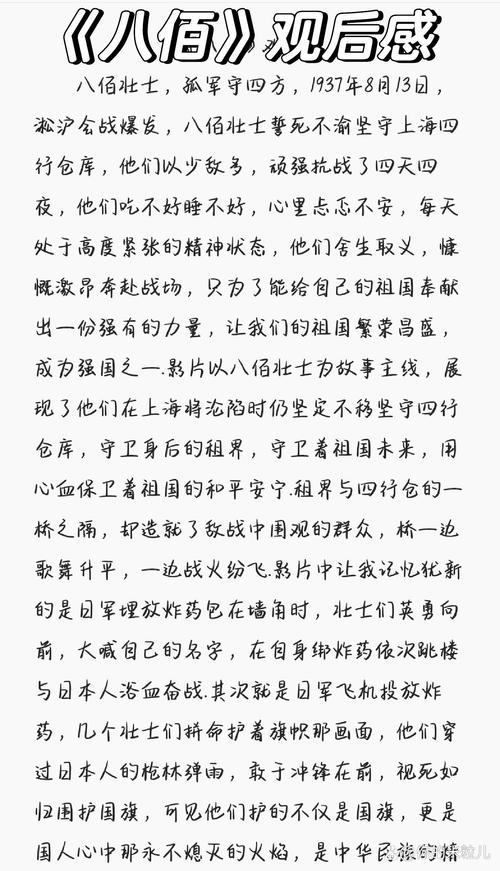 《八佰》观后感
八佰壮士，孤军守四方，1937年8月13日，
淞沪会战爆发，八佰壮士誓死不渝坚守上海四
行仓库，他们以少敌多，顽强抗战了四天四
夜，他们吃不好睡不好，心里忐忑不安，每天
处于高度紧张的精神状态，他们舍生取义，慷
慨激昂奔赴战场，只为了能给自己的祖国奉献
出一份强有的力量，让我们的祖国繁荣昌盛，
成为强国之一.影片以八佰壮士为故事主线，展
现了他们在上海将沦陷时仍坚定不移坚守四行
仓库，守卫身后的租界，守卫着祖国未来，用
心血保卫着祖国的和平安宁.租界与四行仓的一
桥之隔，却造就了敌战中围观的群众，桥一边
歌舞升平，一边战火纷飞.影片中让我记忆犹新
的是日军埋放炸药包在墙角时，壮士们英勇向
前，大喊自己的名字，在自身绑炸药依次跳楼
与日本人浴血奋战.其次就是日军飞机投放炸
药，几个壮士们拼命护着旗帜那画面，他们穿
过日本人的枪林弹雨，敢于冲锋在前，视死如
归围护国旗，可见他们护的不仅是国旗，更是
国人心中那永不熄灭的火焰，是中华民族的精